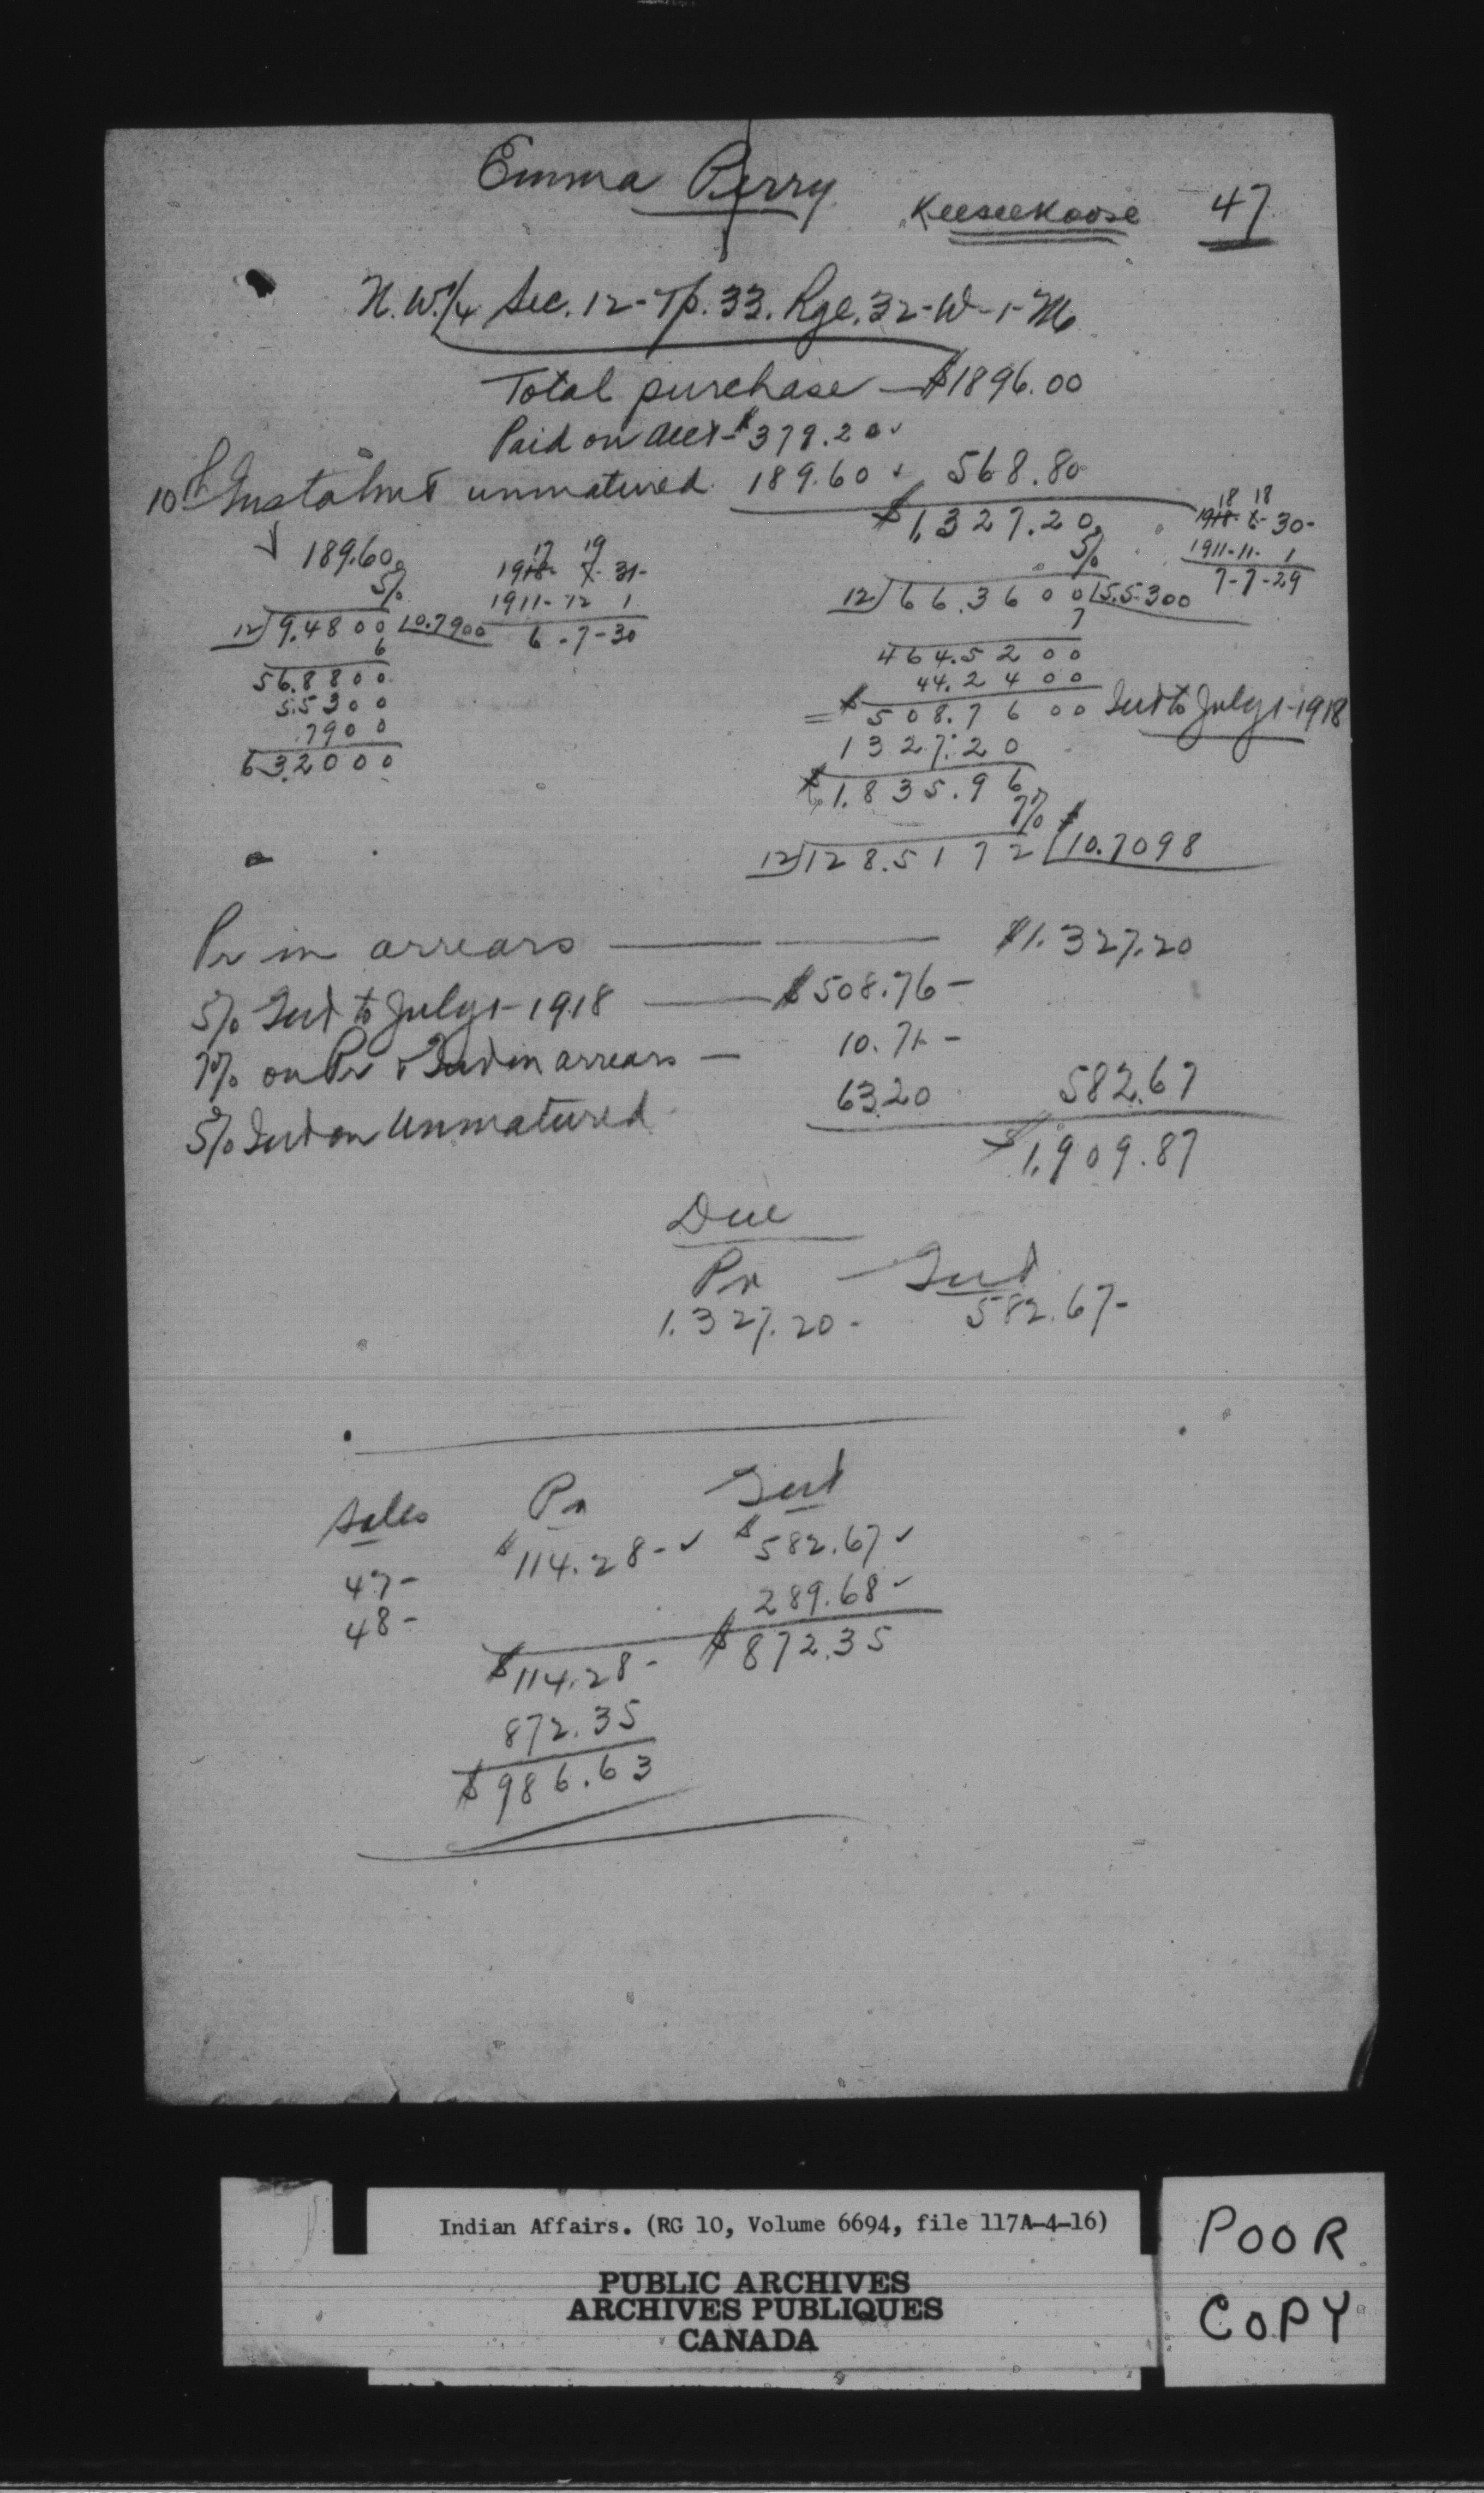 Emma Perry
Keeseekoose 47
N.W.1/4 Sec. 12-Tp. 33. Rge. 32-W-1-M
Total purchase — $1896.00
Paid on acct - $379.20
10th Instalmt unmatured. 189.60 568.80
$1,327.20
5%
18 18
1918-6-30-
1911-11-1
7-7-29
189.60
5%
12)9.4800 (0.7900
6
56.8800
5.5300
.7900
63.2000
17 19
1918-7-31-
1911-12 1
6-7-30
12)66.3600 (5.5300
7
464.5200
44.2400
= $508.7600 Int to July 1-1918
1327.20
$1.835.96
7%
12)128.5172 ($10.7098
Pr in arrears — $1.327.20
5% Int to July 1-1918 — $508.76-
7% on Pr & Int in arrears — 10.71-
5% Int on Unmatured 63.20 582.67
$1,909.87
Due
Pr — Int
1.327.20- 582.67-
Sales Pr Int
47- $114.28- $582.67
48- 289.68
$114.28- $872.35
872.35
$986.63
Indian Affairs. (RG 10, Volume 6694, file 117A-4-16)
PUBLIC ARCHIVES
ARCHIVES PUBLIQUES
CANADA
POOR
COPY